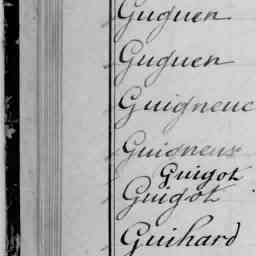 Guguen
Guguen
Guigneuc
Guigneux
Guigot
Guigot
Guihard